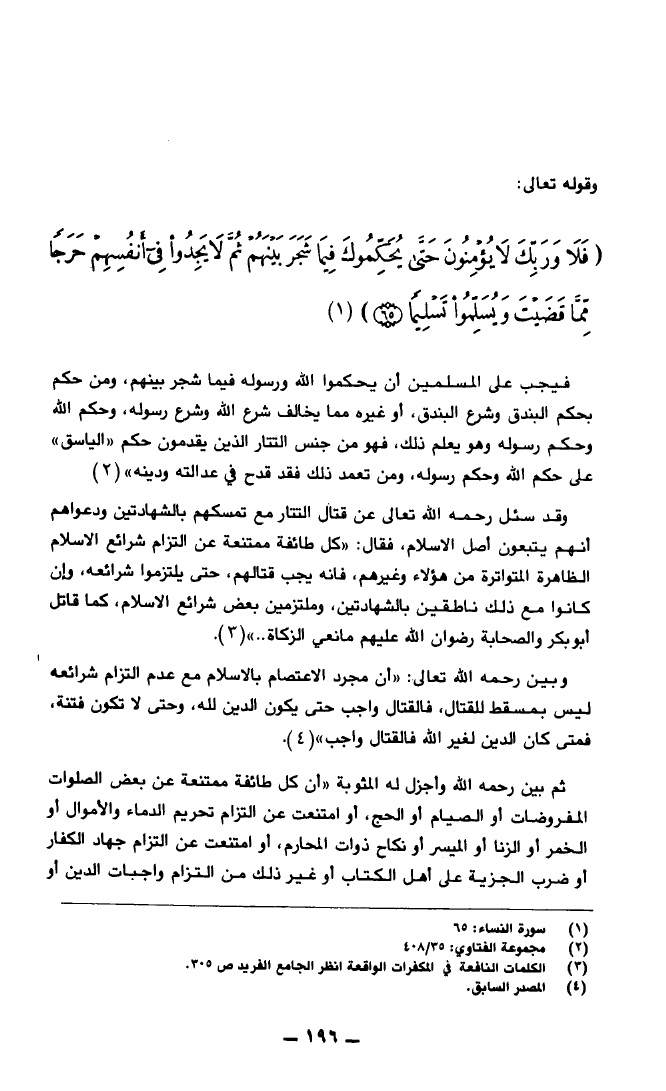 وقوله تعالى:
( فَلَا وَرَبِّكَ لَا يُؤْمِنُونَ حَتَّىٰ يُحَكِّمُوكَ فِيمَا شَجَرَ بَيْنَهُمْ ثُمَّ لَا يَجِدُواْ فِىٓ أَنفُسِهِمْ حَرَجًا
مِّمَّا قَضَيْتَ وَيُسَلِّمُواْ تَسْلِيمًا ۝٦٥ ) (١)
فيجب على المسلمين أن يحكموا الله ورسوله فيما شجر بينهم، ومن حكم
بحكم البندق وشرع البندق، أو غيره مما يخالف شرع الله وشرع رسوله، وحكم الله
وحكم رسوله وهو يعلم ذلك، فهو من جنس التتار الذين يقدمون حكم «الياسق»
على حكم الله وحكم رسوله، ومن تعمد ذلك فقد قدح في عدالته ودينه» (٢)
وقد سئل رحمه الله تعالى عن قتال التتار مع تمسكهم بالشهادتين ودعواهم
أنهم يتبعون أصل الاسلام، فقال: «كل طائفة ممتنعة عن التزام شرائع الاسلام
الظاهرة المتواترة من هؤلاء وغيرهم، فانه يجب قتالهم، حتى يلتزموا شرائعه، وإن
كانوا مع ذلك ناطقين بالشهادتين، وملتزمين بعض شرائع الاسلام، كما قاتل
أبوبكر والصحابة رضوان الله عليهم مانعي الزكاة..»(٣).
وبين رحمه الله تعالى: «أن مجرد الاعتصام بالاسلام مع عدم التزام شرائعه
ليس بمسقط للقتال، فالقتال واجب حتى يكون الدين لله، وحتى لا تكون فتنة،
فمتى كان الدين لغير الله فالقتال واجب»(٤).
ثم بين رحمه الله وأجزل له المثوبة «أن كل طائفة ممتنعة عن بعض الصلوات
المفروضات أو الصيام أو الحج، أو امتنعت عن التزام تحريم الدماء والأموال أو
الخمر أو الزنا أو الميسر أو نكاح ذوات المحارم، أو امتنعت عن التزام جهاد الكفار
أو ضرب الجزية على أهل الكتاب أو غير ذلك من التزام واجبات الدين أو
(١) سورة النساء: ٦٥
(٢) مجموعة الفتاوي: ٤٠٨/٣٥
(٣) الكلمات النافعة في المكفرات الواقعة انظر الجامع الفريد ص ٣٠٥.
(٤) المصدر السابق.
– ١٩٦ –